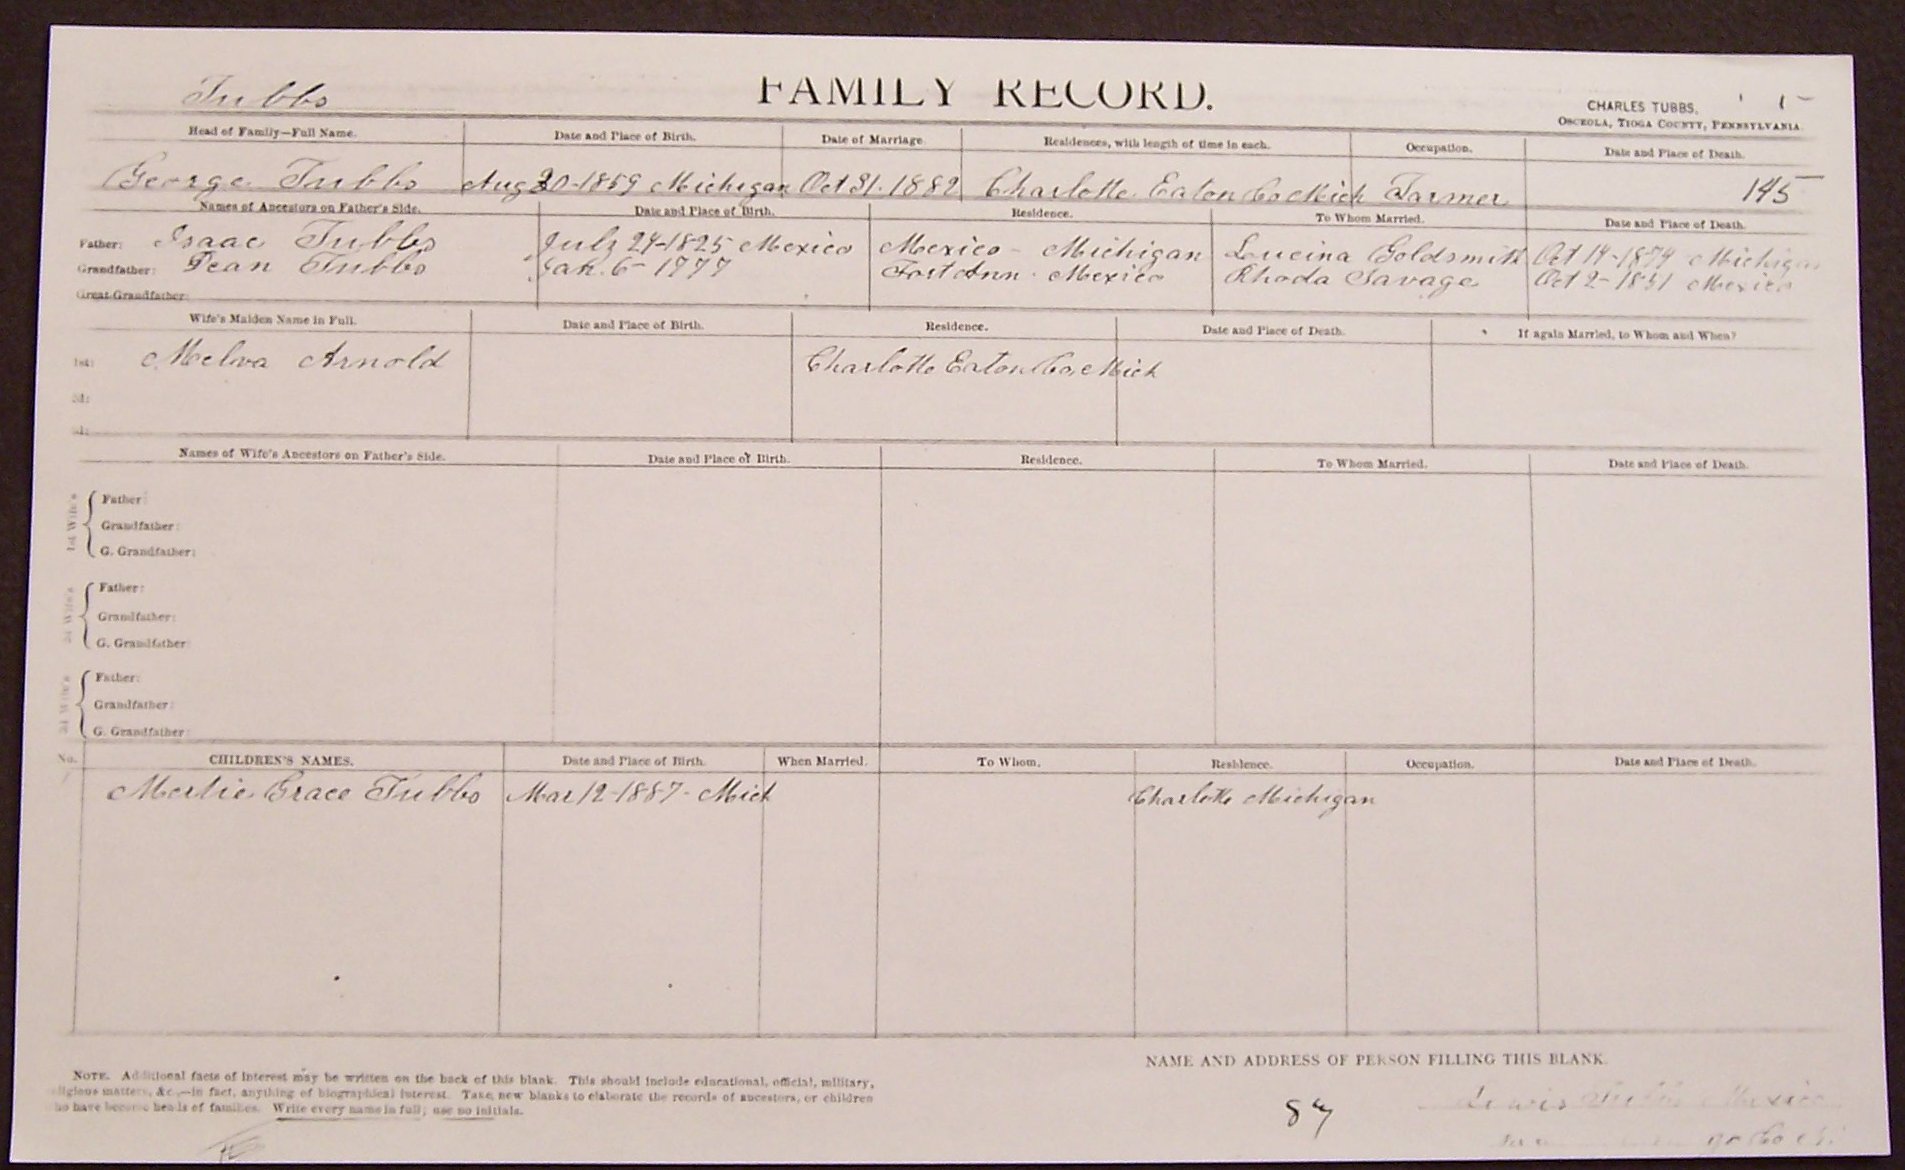 Tubbs
FAMILY RECORD.
CHARLES TUBBS,
OSCEOLA, TIOGA COUNTY, PENNSYLVANIA.
Head of Family—Full Name. Date and Place of Birth. Date of Marriage Residences, with length of time in each. Occupation. Date and Place of Death.
George Tubbs Aug 20-1859 Michigan Oct 31. 1882 Charlotte Eaton Co Mich Farmer 145
Names of Ancestors on Father's Side. Date and Place of Birth. Residence. To Whom Married. Date and Place of Death.
Father: Isaac Tubbs July 24-1825 Mexico Mexico - Michigan Lucina Goldsmith Oct 14-1879 Michigan
Grandfather: Dean Tubbs Jan. 6- 1777 Fort Ann - Mexico Rhoda Savage Oct 2- 1851 Mexico
Great-Grandfather:
Wife's Maiden Name in Full. Date and Place of Birth. Residence. Date and Place of Death. If again Married, to Whom and When?
1st: Melva Arnold Charlotte Eaton Co, Mich
2d:
3d:
Names of Wife's Ancestors on Father's Side. Date and Place of Birth. Residence. To Whom Married. Date and Place of Death.
1st Wife's
Father:
Grandfather:
G. Grandfather:
2d Wife's
Father:
Grandfather:
G. Grandfather:
3d Wife's
Father:
Grandfather:
G. Grandfather:
No. CHILDREN'S NAMES. Date and Place of Birth. When Married. To Whom. Residence. Occupation. Date and Place of Death.
Mertie Grace Tubbs Mar 12-1887- Mich Charlotte Michigan
NAME AND ADDRESS OF PERSON FILLING THIS BLANK.
NOTE. Additional facts of interest may be written on the back of this blank. This should include educational, official, military,
religious matters, &c.—in fact, anything of biographical interest. Take new blanks to elaborate the records of ancestors, or children
who have become heads of families. Write every name in full; use no initials.
Lewis Tubbs Mexico
87